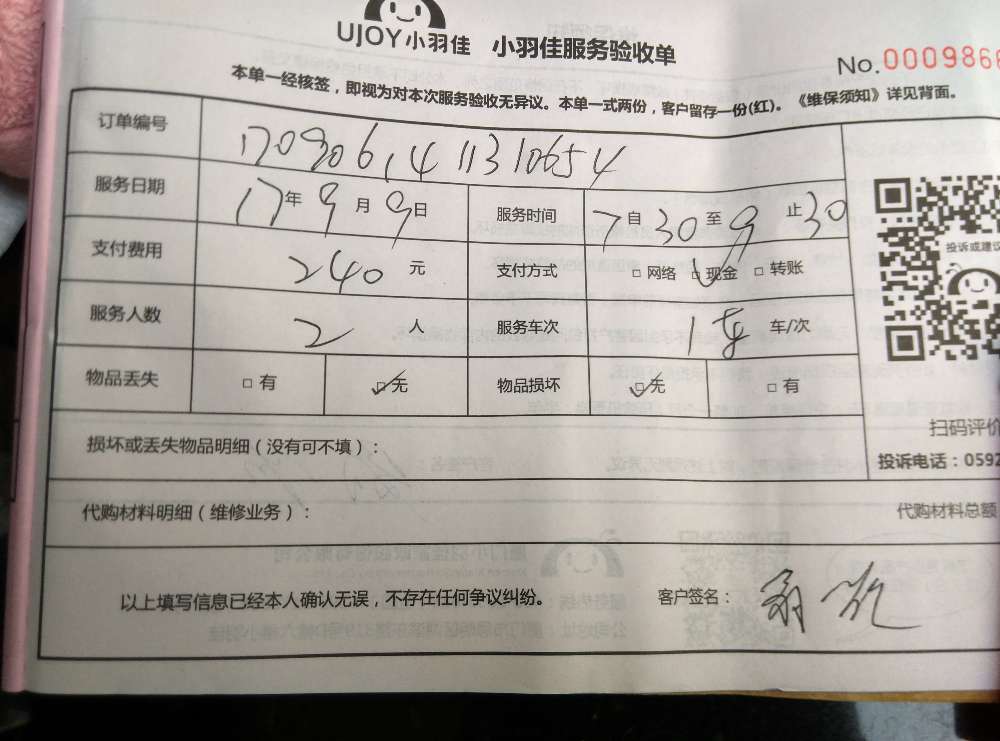 UJOY小羽佳 小羽佳服务验收单
No.0009866
本单一经核签，即视为对本次服务验收无异议。本单一式两份，客户留存一份(红)。《维保须知》详见背面。
订单编号 1709061411310654
服务日期 17年9月9日 服务时间 7自30至9止30
投诉或建议
支付费用 240元 支付方式 □网络 □现金 □转账
服务人数 2人 服务车次 1 车/次
物品丢失 □有 □无 物品损坏 □无 □有
扫码评价
损坏或丢失物品明细（没有可不填）：
投诉电话：0592
代购材料明细（维修业务）： 代购材料总额
以上填写信息已经本人确认无误，不存在任何争议纠纷。 客户签名：